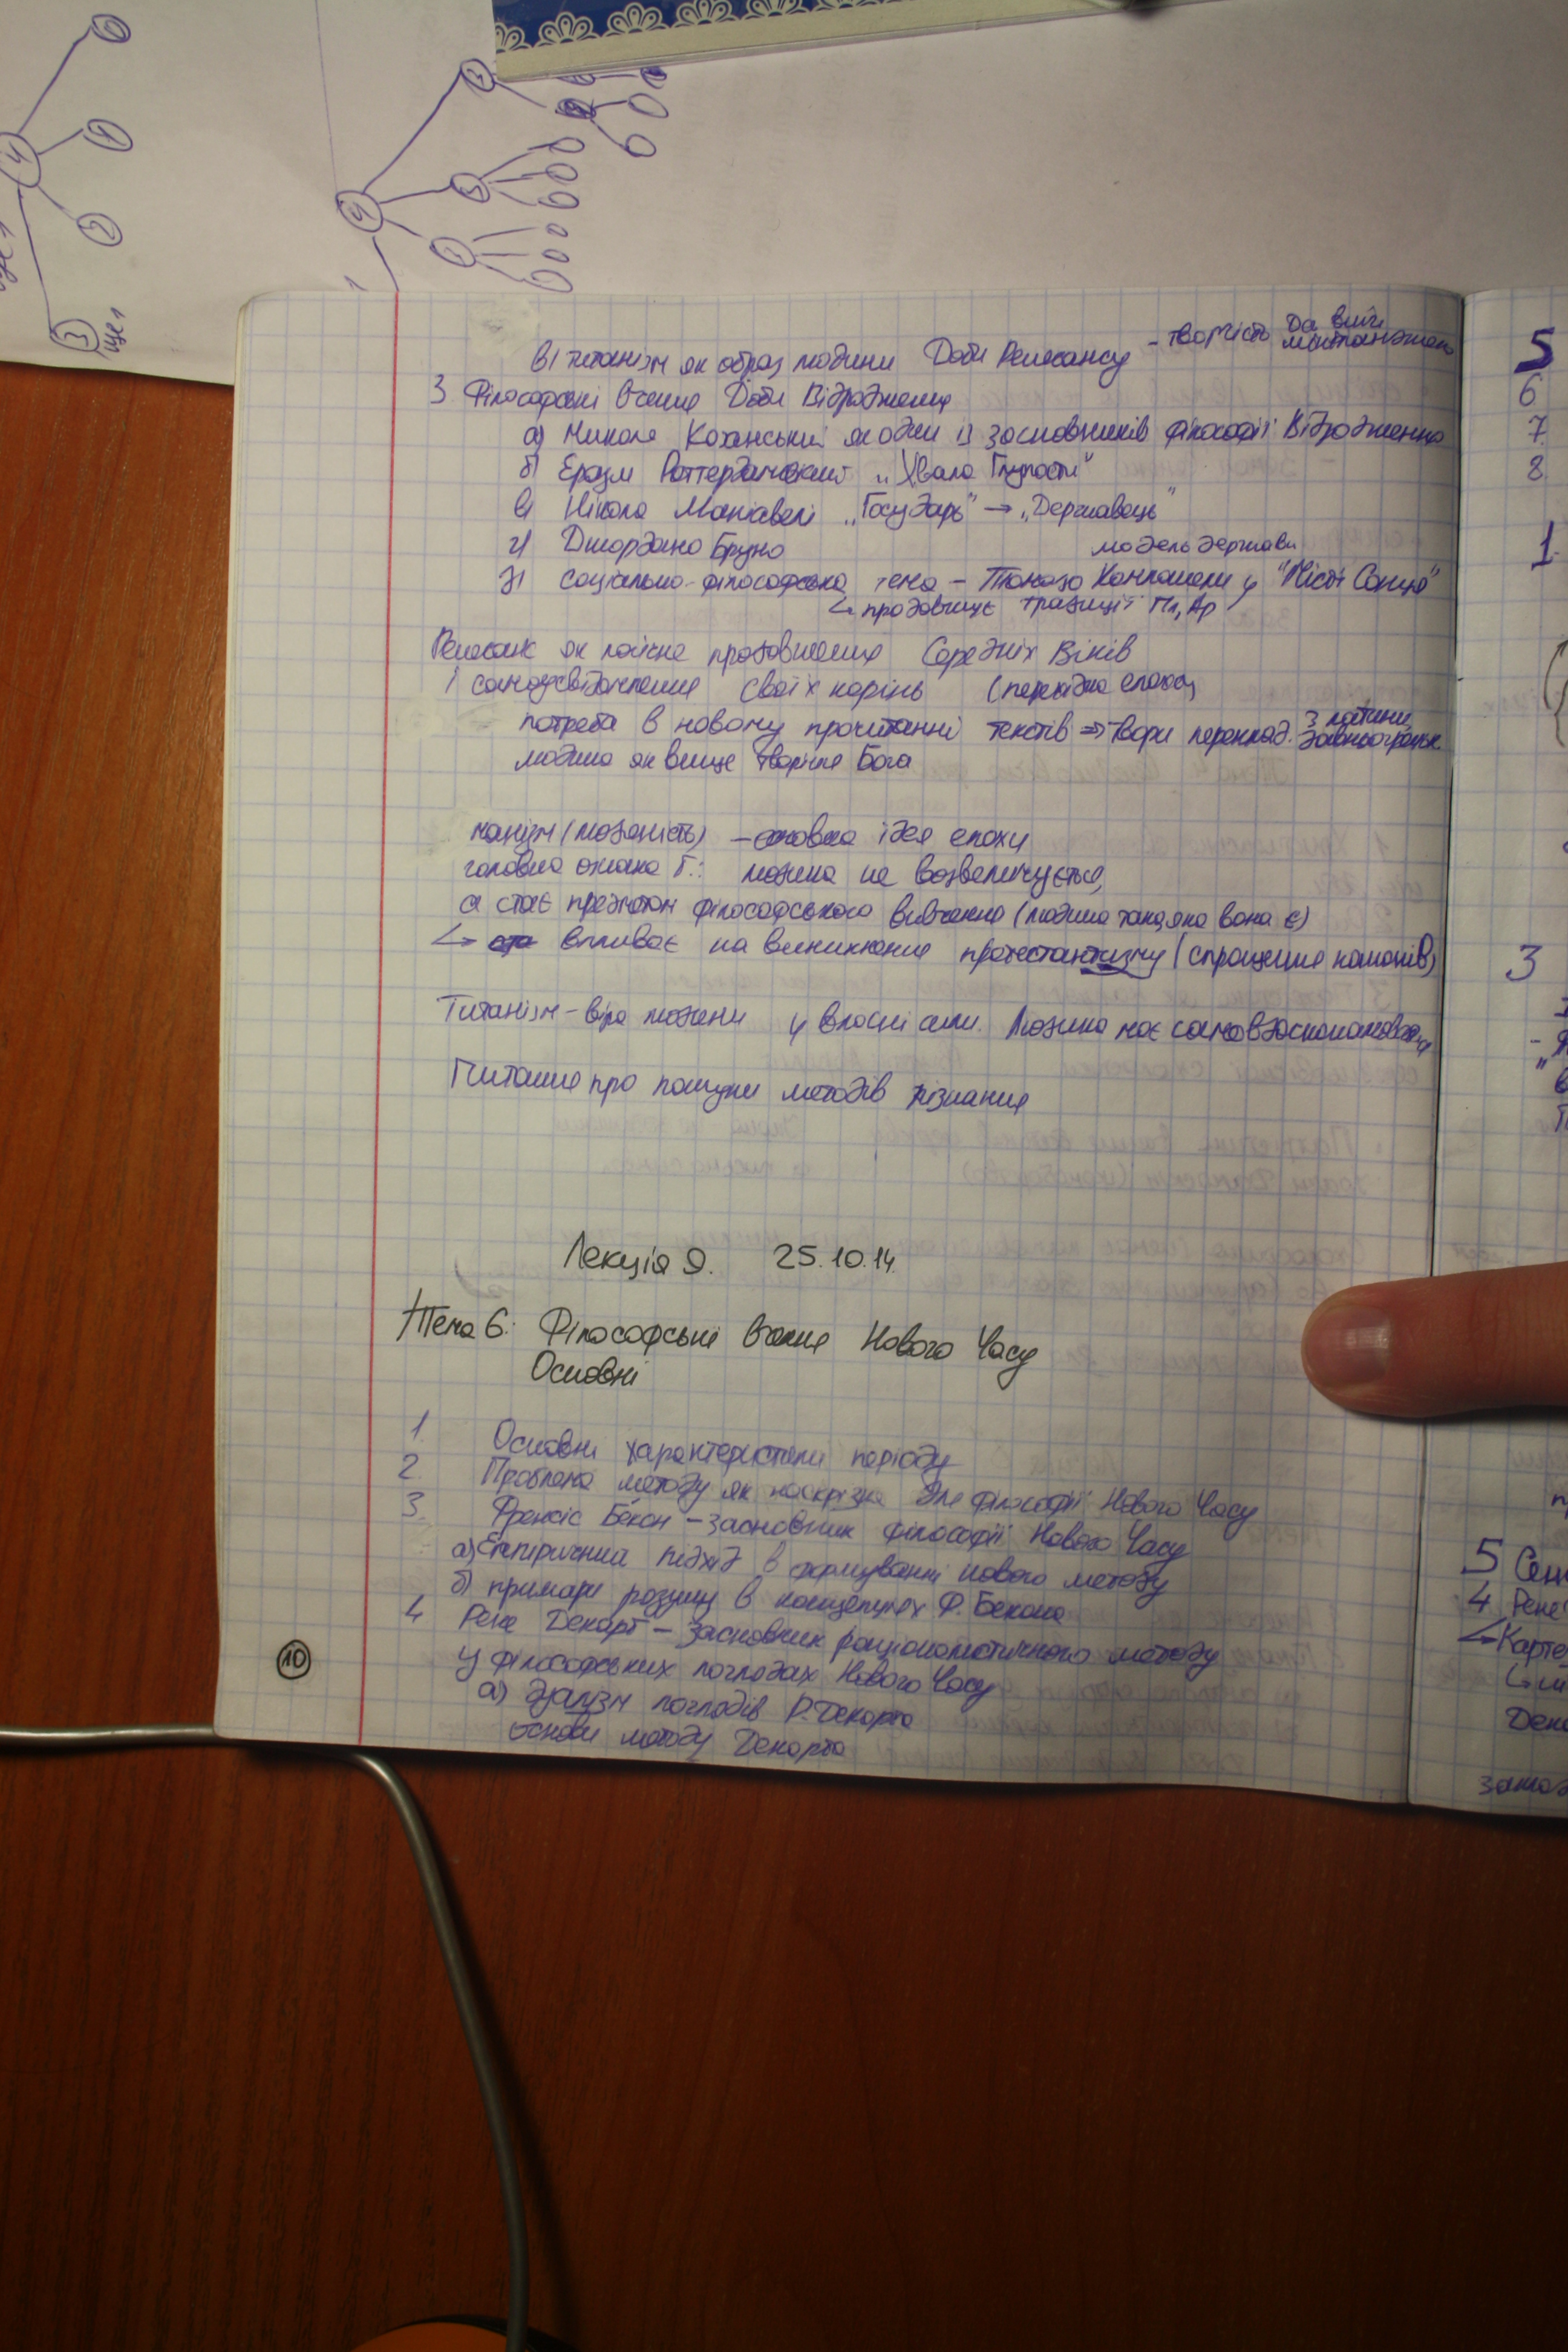 в) титанізм як образ людини Доби Ренесансу - творчість Да Вінчі
3. Філософські вчення Доби Відродження
а) Микола Кузанський як один із засновників філософії Відродження
б) Еразм Роттердамський „Хвала Глупости"
в) Нікола Макіавелі „Государь" → „Державець"
г) Джордано Бруно
модель держави
д) соціально-філософська тема – Томазо Кампанели у "Місті Сонця"
↳ продовжує традиції Пл, Ар
Ренесанс як логічне продовження Середніх Віків
і самоусвідомлення своїх корінь (перехідна епоха)
потреба в новому прочитанні текстів => твори переклад. з латини,
людина як вище творіння Бога
манізм (людяність) – основна ідея епохи
головна ознака Г.: людина не возвеличується,
а стає предметом філософського вивчення (людина така, яка вона є)
↳ впливає на виникнення протестантизму (спрощення канонів)
Титанізм – віра людини у власні сили. Людина має самовдосконалюватися
Питання про пошуки методів пізнання
Лекція 9. 25.10.14
Тема 6: Філософські вчення Нового Часу
Основні
1. Основні характеристики періоду
2. Проблема методу як наскрізна для філософії Нового Часу
3. Френсіс Бекон – засновник філософії Нового Часу
а) Емпіричний підхід в формуванні нового методу
б) примари розуму в концепціях Ф. Бекона
4 Рене Декарт – засновник раціоналістичного методу
у філософських поглядах Нового Часу
а) дуалізм поглядів Р. Декарта
основи методу Декарта
10
5
6
7.
8.
1.
3
5
4 Рене